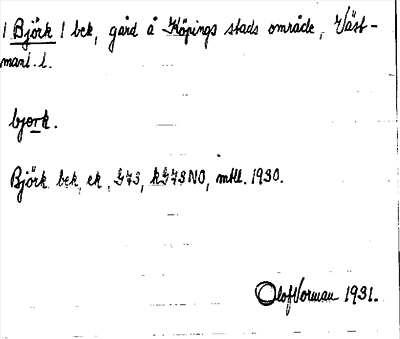 / Björk / bek, gård å Köpings stads område, Väst-
manl. l.
bjork.
Björk bek, ek, G73, kG73NO, mtll. 1930.
Olof Vorman 1931.